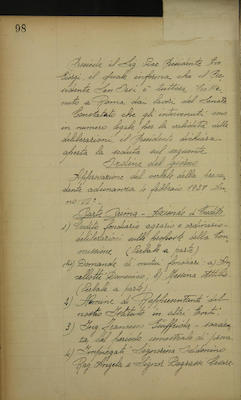 98
Presiede il Sig. Vice Presidente
il quale informa che il Pre-
sidente San è tuttora
nuto a Roma dai lavori del Senato
Constatato che gli intervenuti sono
in numero legale per la validità delle
deliberazioni, il Presidente dichiara
aperta la seduta sul seguente
Ordine del giorno
Approvazione del verbale della prece-
dente adunanza febbraio 1937 An-
no
Parte Prima - Azienda di Credito
1) Credito fondiario agrario e ordinario -
deliberazioni sulle proposte della Com-
missione (Verbale a parte)
Domande di mutui fondiari: a)
Domenico, b) Messina Attilio
(Verbale a parte)
2) Nomine di Rappresentanti del
nostro Istituto in altri Enti
3) Ing. Francesco
za dal periodo semestrale di prova
4) Impiegati
Rag. Angelo e Signor Cesare